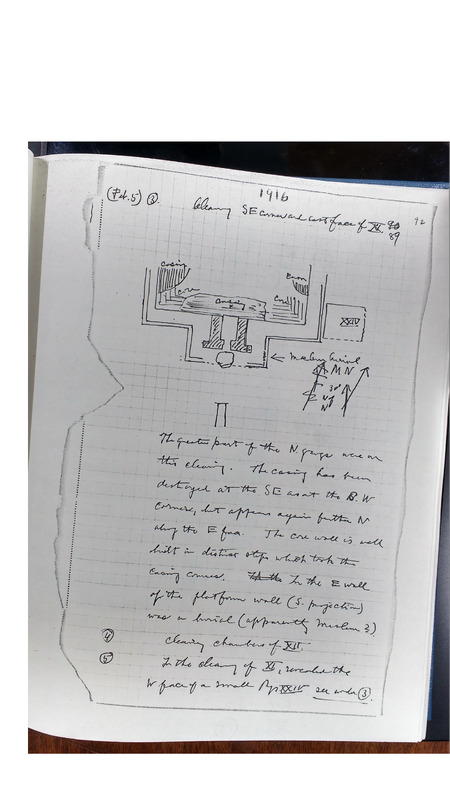 1916
(Feb. 5) ③ Clearing SE corner and east face of XI. 90
89
92
Casing
Core
Casing
Core
XXIV
← Muslim burial
M N
The greater part of the N gangs were on
this clearing. The casing has been
destroyed at the SE as at the SW
corners, but appears again further N
along the E face. The core wall is well
built in distinct steps which took the
casing courses. In the E wall
of the platform wall (S. projection)
was a burial (apparently Muslim ?)
④ clearing chambers of XII.
⑤ In the clearing of XI, revealed the
W face of a small Pyr XXIV see under ③.